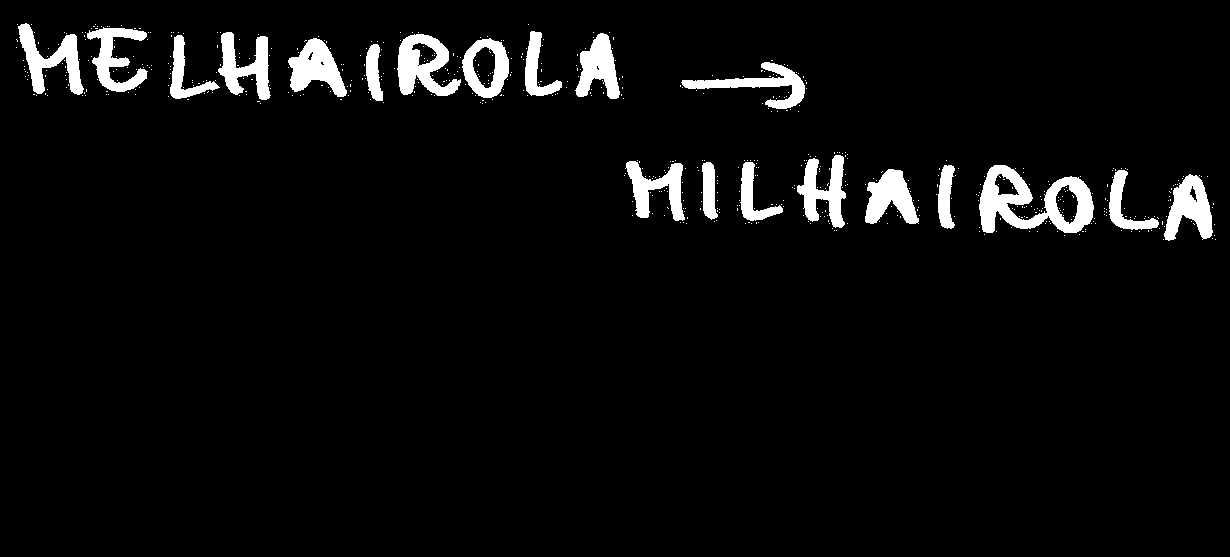 MELHAIROLA →
MILHAIROLA